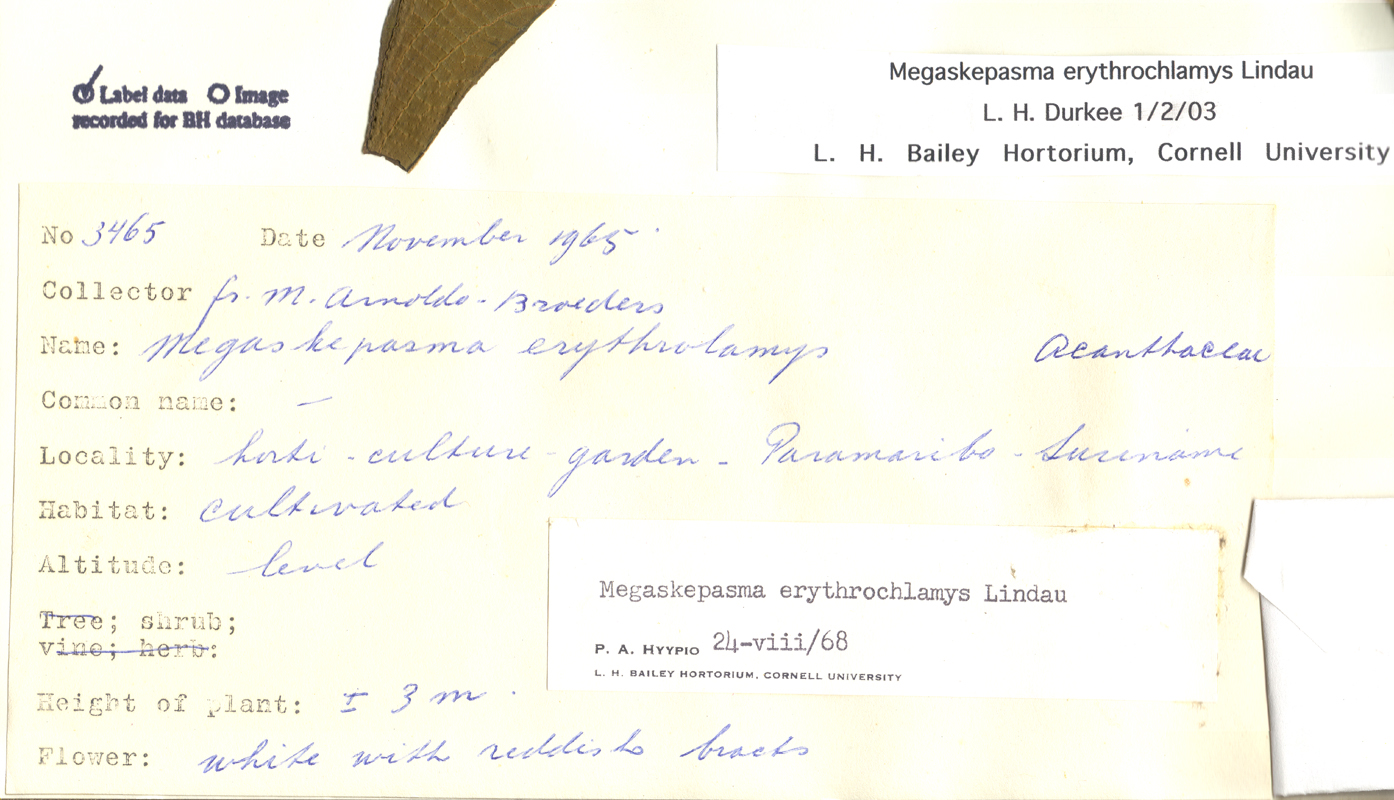 Label data Image
recorded for BH database
Megaskepasma erythrochlamys Lindau
L. H. Durkee 1/2/03
L. H. Bailey Hortorium, Cornell University
No 3465 Date November 1965
Collector fr. M. Arnoldo-Broeders
Name: Megaskepasma erythrolamys Acanthaceae
Common name: —
Locality: horti-culture-garden - Paramaribo - Suriname
Habitat: cultivated
Altitude: level
Tree; shrub;
vine; herb:
Height of plant: ± 3 m.
Flower: white with reddish bracts
Megaskepasma erythrochlamys Lindau
P. A. HYYPIO 24-viii/68
L. H. BAILEY HORTORIUM, CORNELL UNIVERSITY